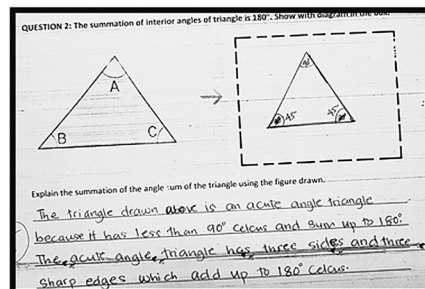 QUESTION 2: The summation of interior angles of triangle is 180°. Show with diagram in the box.
A
B
C
90
45
45
Explain the summation of the angle sum of the triangle using the figure drawn.
The triangle drawn above is an acute angle triangle
because it has less than 90° celcus and sum up to 180°.
The acute angle triangle has three sides and three
sharp edges which add up to 180° celcus.